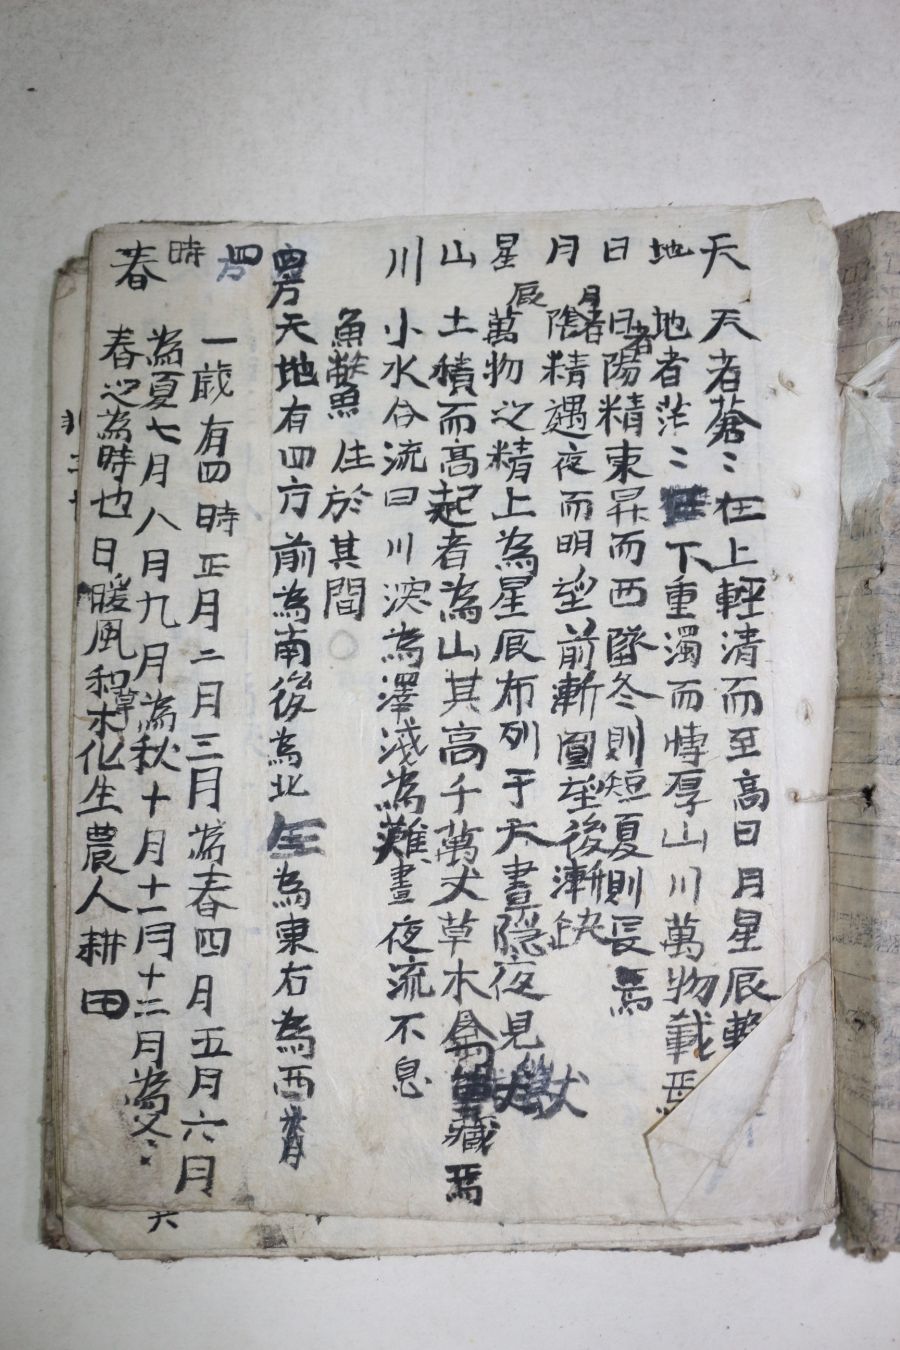 天 天者蒼〻在上輕清而至高日月星辰
地 地者茫〻在下重濁而博厚山川萬物載焉
日 日者陽精東昇而西墜冬則短夏則長焉
月 月者陰精遇夜而明望前漸圓望後漸缺
星辰 萬物之精上為星辰布列于天晝隐夜見
山 土積而高起者為山其高千萬丈草木禽獸藏焉
川 小水合流曰川深為澤浅為難晝夜流不息
魚鱉 生於其間
四方 天地有四方前為南後為北左為東右為西
四時 一歲有四時正月二月三月為春四月五月六月
為夏七月八月九月為秋十月十一月十二月為冬〻
春 春之為時也日暖風和草木化生農人耕田